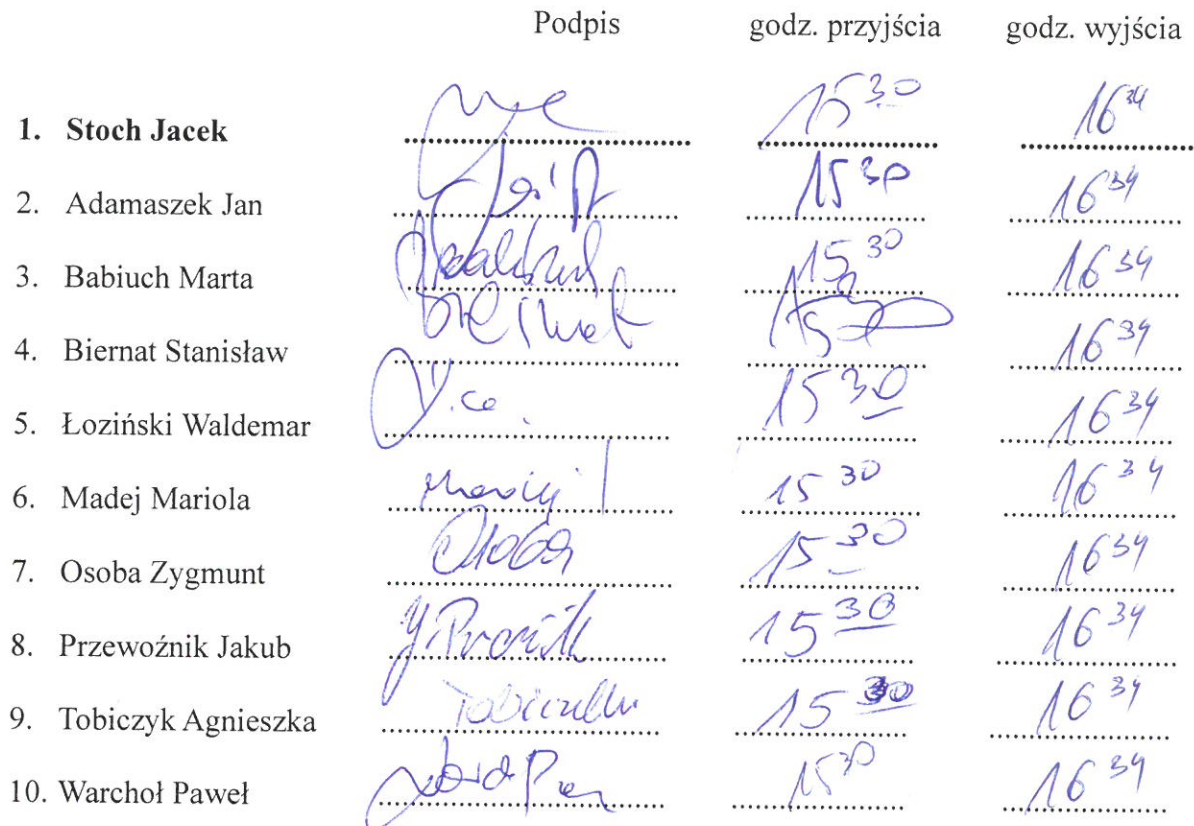 Podpis godz. przyjścia godz. wyjścia
1. Stoch Jacek 15 30 16 34
2. Adamaszek Jan 15 30 16 34
3. Babiuch Marta 15 30 16 34
4. Biernat Stanisław 16 34
5. Łoziński Waldemar 15 30 16 34
6. Madej Mariola 15 30 16 34
7. Osoba Zygmunt Osoba 15 30 16 34
8. Przewoźnik Jakub 15 30 16 34
9. Tobiczyk Agnieszka 15 30 16 34
10. Warchoł Paweł 15 30 16 34